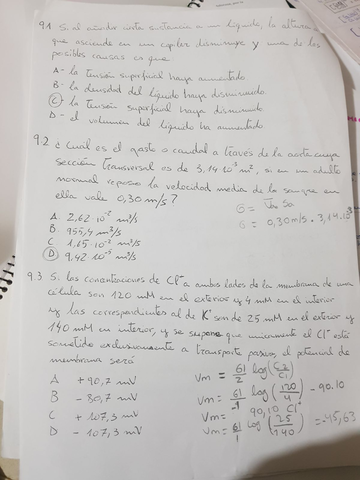 9.1 Si al añadir cierta sustancia a un líquido, la altura
que asciende en un capilar disminuye y una de las
posibles causas es que
A- la tensión superficial haya aumentado
B- la densidad del líquido haya disminuido
C- la tensión superficial haya disminuido
D- el volumen del líquido ha aumentado
9.2 ¿Cual es el gasto o caudal a través de la aorta cuya
sección transversal es de 3,14·10⁻⁴ m², si en un adulto
normal reposo la velocidad media de la sangre en
ella vale 0,30 m/s?
A. 2,62·10⁻⁵ m³/s
B. 955,4 m³/s
C. 1,65·10⁻² m³/s
D 9,42·10⁻⁵ m³/s
G = 0,30 m/s · 3,14·10
9.3 Si las concentraciones de Cl⁻ a ambos lados de la membrana de una
célula son 120 mM en el exterior y 4 mM en el interior
y las correspondientes al de K⁺ son de 25 mM en el exterior y
140 mM en interior, y se supone que unicamente el Cl⁻ está
sometido exclusivamente a transporte pasivo, el potencial de
membrana será
A +90,7 mV
B -80,7 mV
C +107,3 mV
D -107,3 mV
Vm = 61/2 log(C2/C1)
Vm = 61/-1 log(120/4) = -90.10
Vm = 90,10 Cl⁻
Vm = 61/1 log(25/140) = -45,63